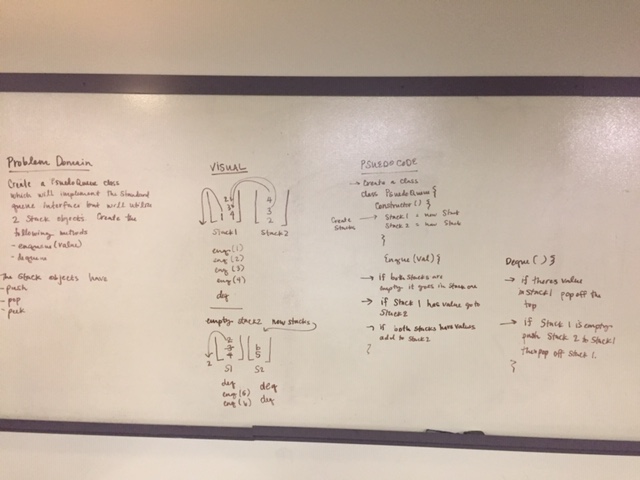 Problem Domain
Create a PsuedoQueue class
which will implement the Standard
queue interface but will utilize
2 Stack objects. Create the
following methods
- enqueue (value)
- dequeue
The Stack objects have
- push
- pop
- peek
VISUAL
4
3
2
1
4
Stack1
Stack2
enq (1)
enq (2)
enq (3)
enq (4)
deq
empty stack2
new stacks
2
3
4
6
5
2
S1
S2
deq
deq
enq (5)
deq
enq (6)
PSUEDOCODE
→ Create a class
class PsuedoQueue {
Constructor () {
Create Stacks
→ Stack 1 = new Stack
Stack 2 = new Stack
}
Enque (val) {
→ if both stacks are
empty it goes in stack one
→ if Stack 1 has value go to
Stack 2
→ if both stacks have values
add to Stack 2
}
Deque () {
→ if theres value
in stack1 pop off the
top
→ if Stack 1 is empty
push Stack 2 to Stack1
then pop off Stack 1.
}